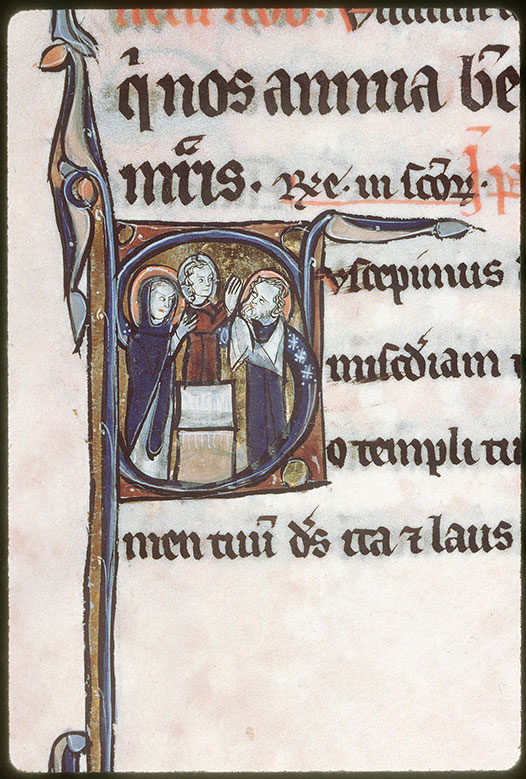 q̃ nos annua bē
mr̄is. Rꝛe. in sc̄oꝝ.
Suscepimus
misc̄diam
o templi tu
men tuū d̄s ita ⁊ laus